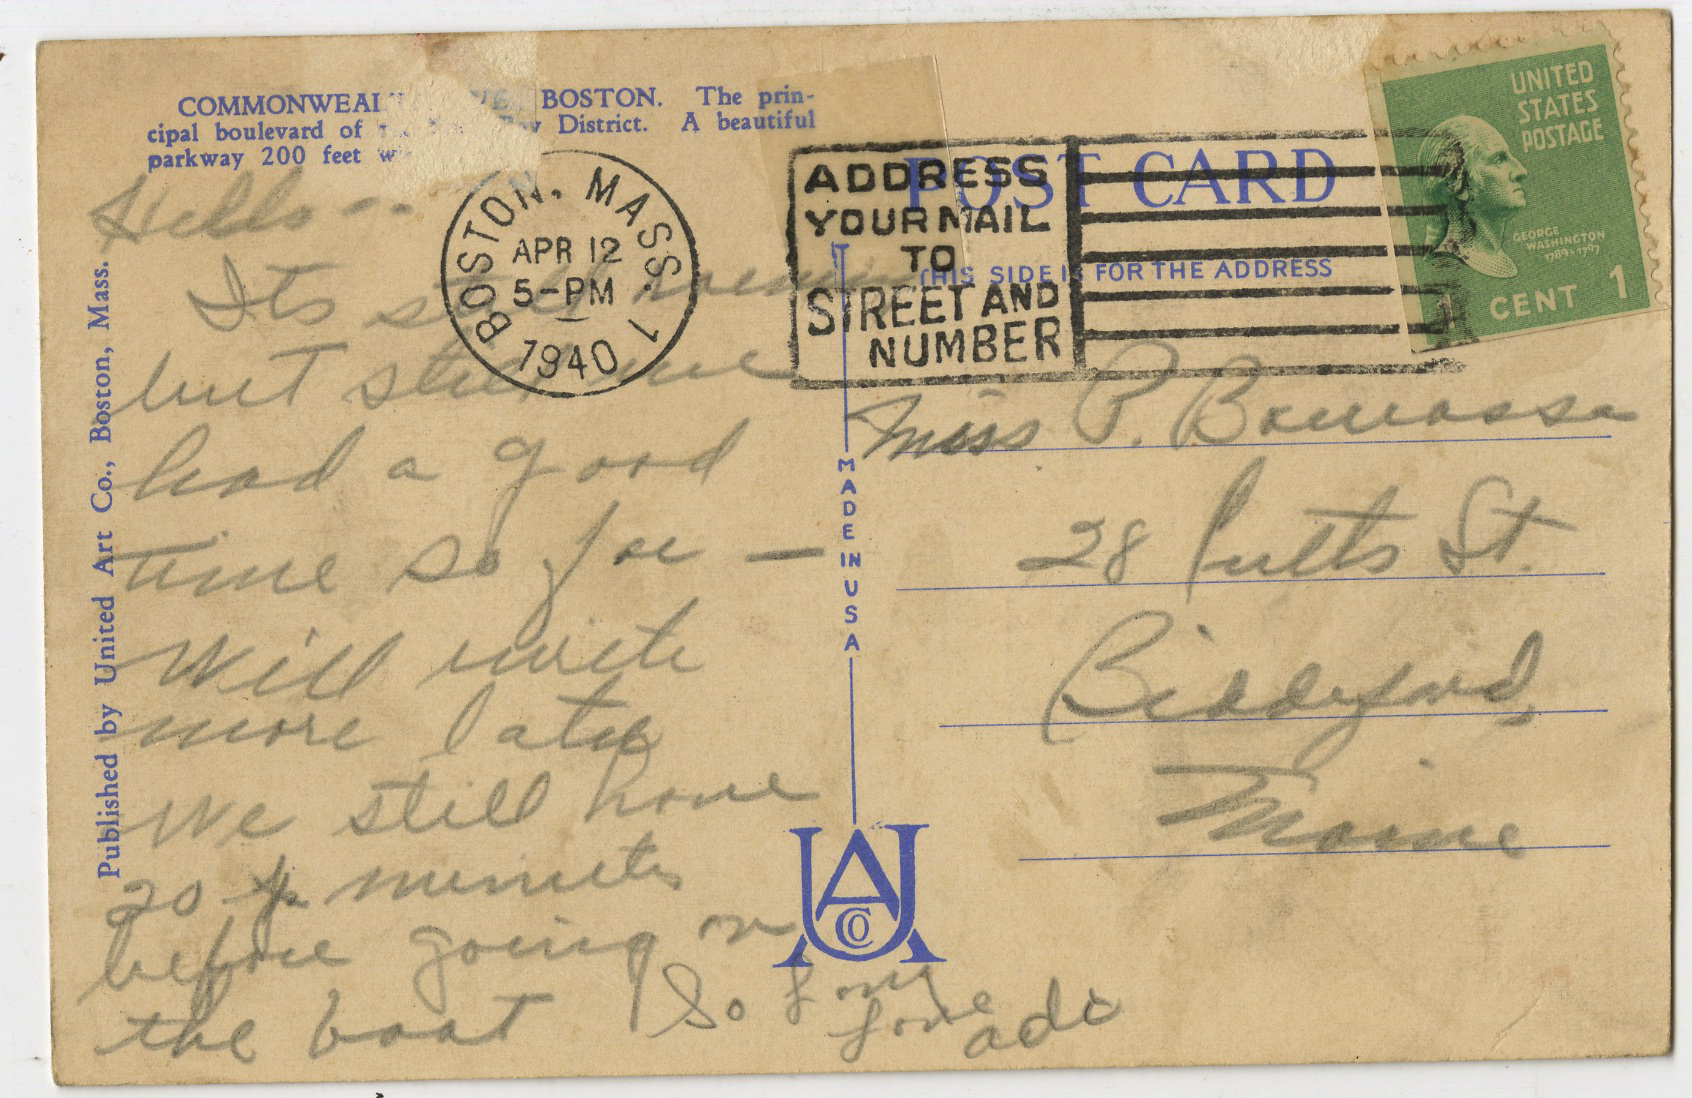 COMMONWEAL BOSTON. The prin-
cipal boulevard of District. A beautiful
parkway 200 feet
Hello --
Its still
but still we
had a good
time so far —
Will write
more later
We still have
20 minutes
before going on
the boat
So Long
Love
Published by United Art Co., Boston, Mass.
BOSTON, MASS. 1
APR 12
5-PM
1940
ADDRESS
YOUR MAIL
TO
STREET AND
NUMBER
POST CARD
THIS SIDE IS FOR THE ADDRESS
UNITED
STATES
POSTAGE
GEORGE
WASHINGTON
1789-1797
1 CENT 1
MADE IN USA
Miss P.
28 St.
Biddeford,
Maine
UA
CO